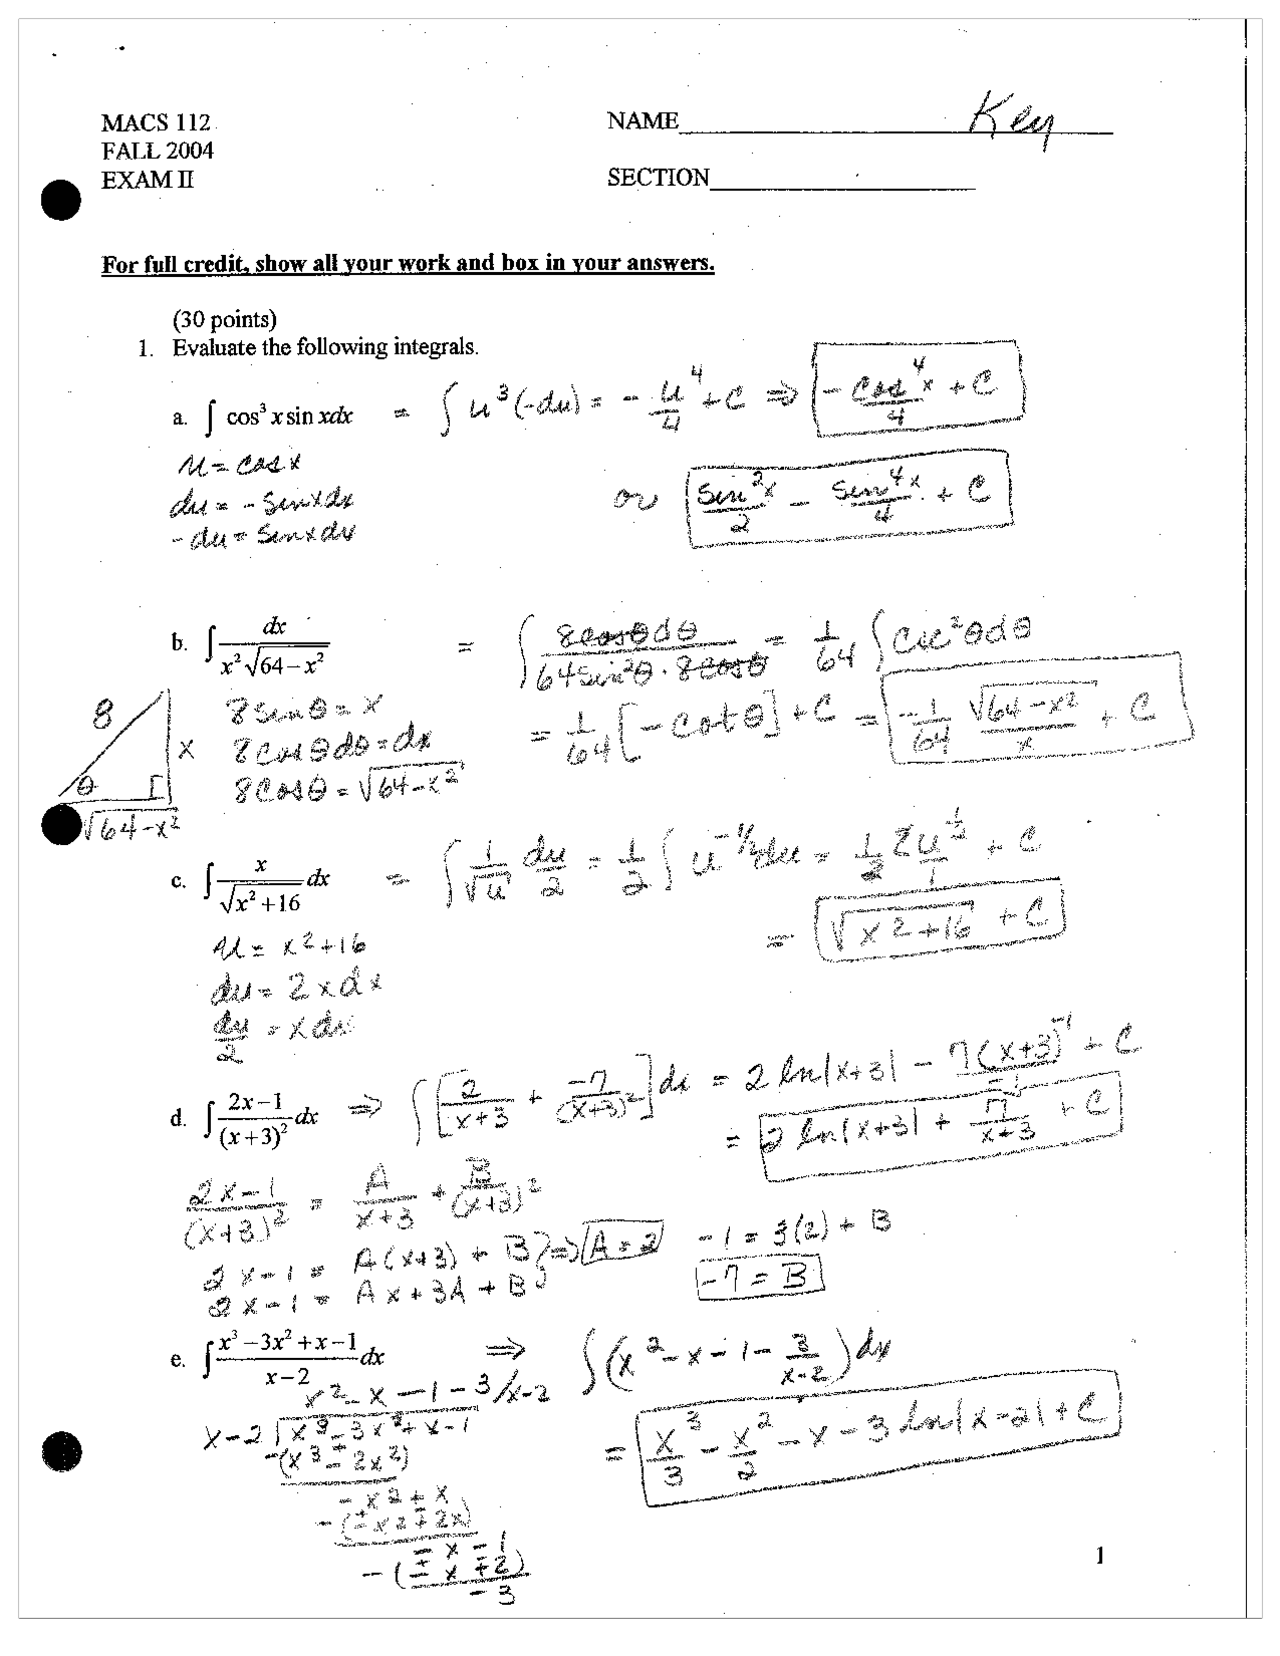 MACS 112
FALL 2004
EXAM II
NAME Key
SECTION
For full credit, show all your work and box in your answers.
(30 points)
1. Evaluate the following integrals.
a. ∫ cos³ x sin x dx = ∫ u³ (-du) = - u⁴/4 + C ⇒ - cos⁴x/4 + C
u = cos x
du = - sin x dx
- du = sin x dx
or sin²x/2 - sin⁴x/4 + C
b. ∫ dx/(x²√(64-x²)) = ∫ 8cosθdθ/(64sin²θ · 8cosθ) = 1/64 ∫ csc²θdθ
8 sinθ = x
8 cosθdθ = dx
8 cosθ = √(64-x²)
= 1/64 [-cotθ] + C = -1/64 √(64-x²)/x + C
8
x
θ
√(64-x²)
c. ∫ x/√(x²+16) dx = ∫ 1/√u du/2 = 1/2 ∫ u^(-1/2) du = 1/2 2u^(1/2)/1 + C
= √(x²+16) + C
u = x²+16
du = 2xdx
du/2 = xdx
d. ∫ (2x-1)/(x+3)² dx ⇒ ∫ [2/(x+3) + -7/(x+3)²] dx = 2 ln|x+3| - 7(x+3)⁻¹/-1 + C
= 2 ln|x+3| + 7/(x+3) + C
(2x-1)/(x+3)² = A/(x+3) + B/(x+3)²
2x-1 = A(x+3) + B } ⇒ A=2
2x-1 = Ax+3A+B
-1 = 3(2) + B
-7 = B
e. ∫ (x³-3x²+x-1)/(x-2) dx ⇒ ∫ (x²-x-1-3/(x-2)) dx
= x³/3 - x²/2 - x - 3 ln|x-2| + C
x² - x - 1 - 3/x-2
x-2 ) x³ - 3x² + x - 1
-(x³ ∓ 2x²)
- x² + x
-(± x² ∓ 2x)
- x - 1
-(± x ∓ 2)
-3
1